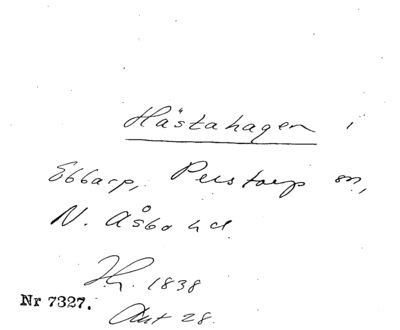 Hästahagen i
Ebbarp, Perstorp sn,
N. Åsbo hd.
Th. 1838
Nr 7327.
Ant 28.